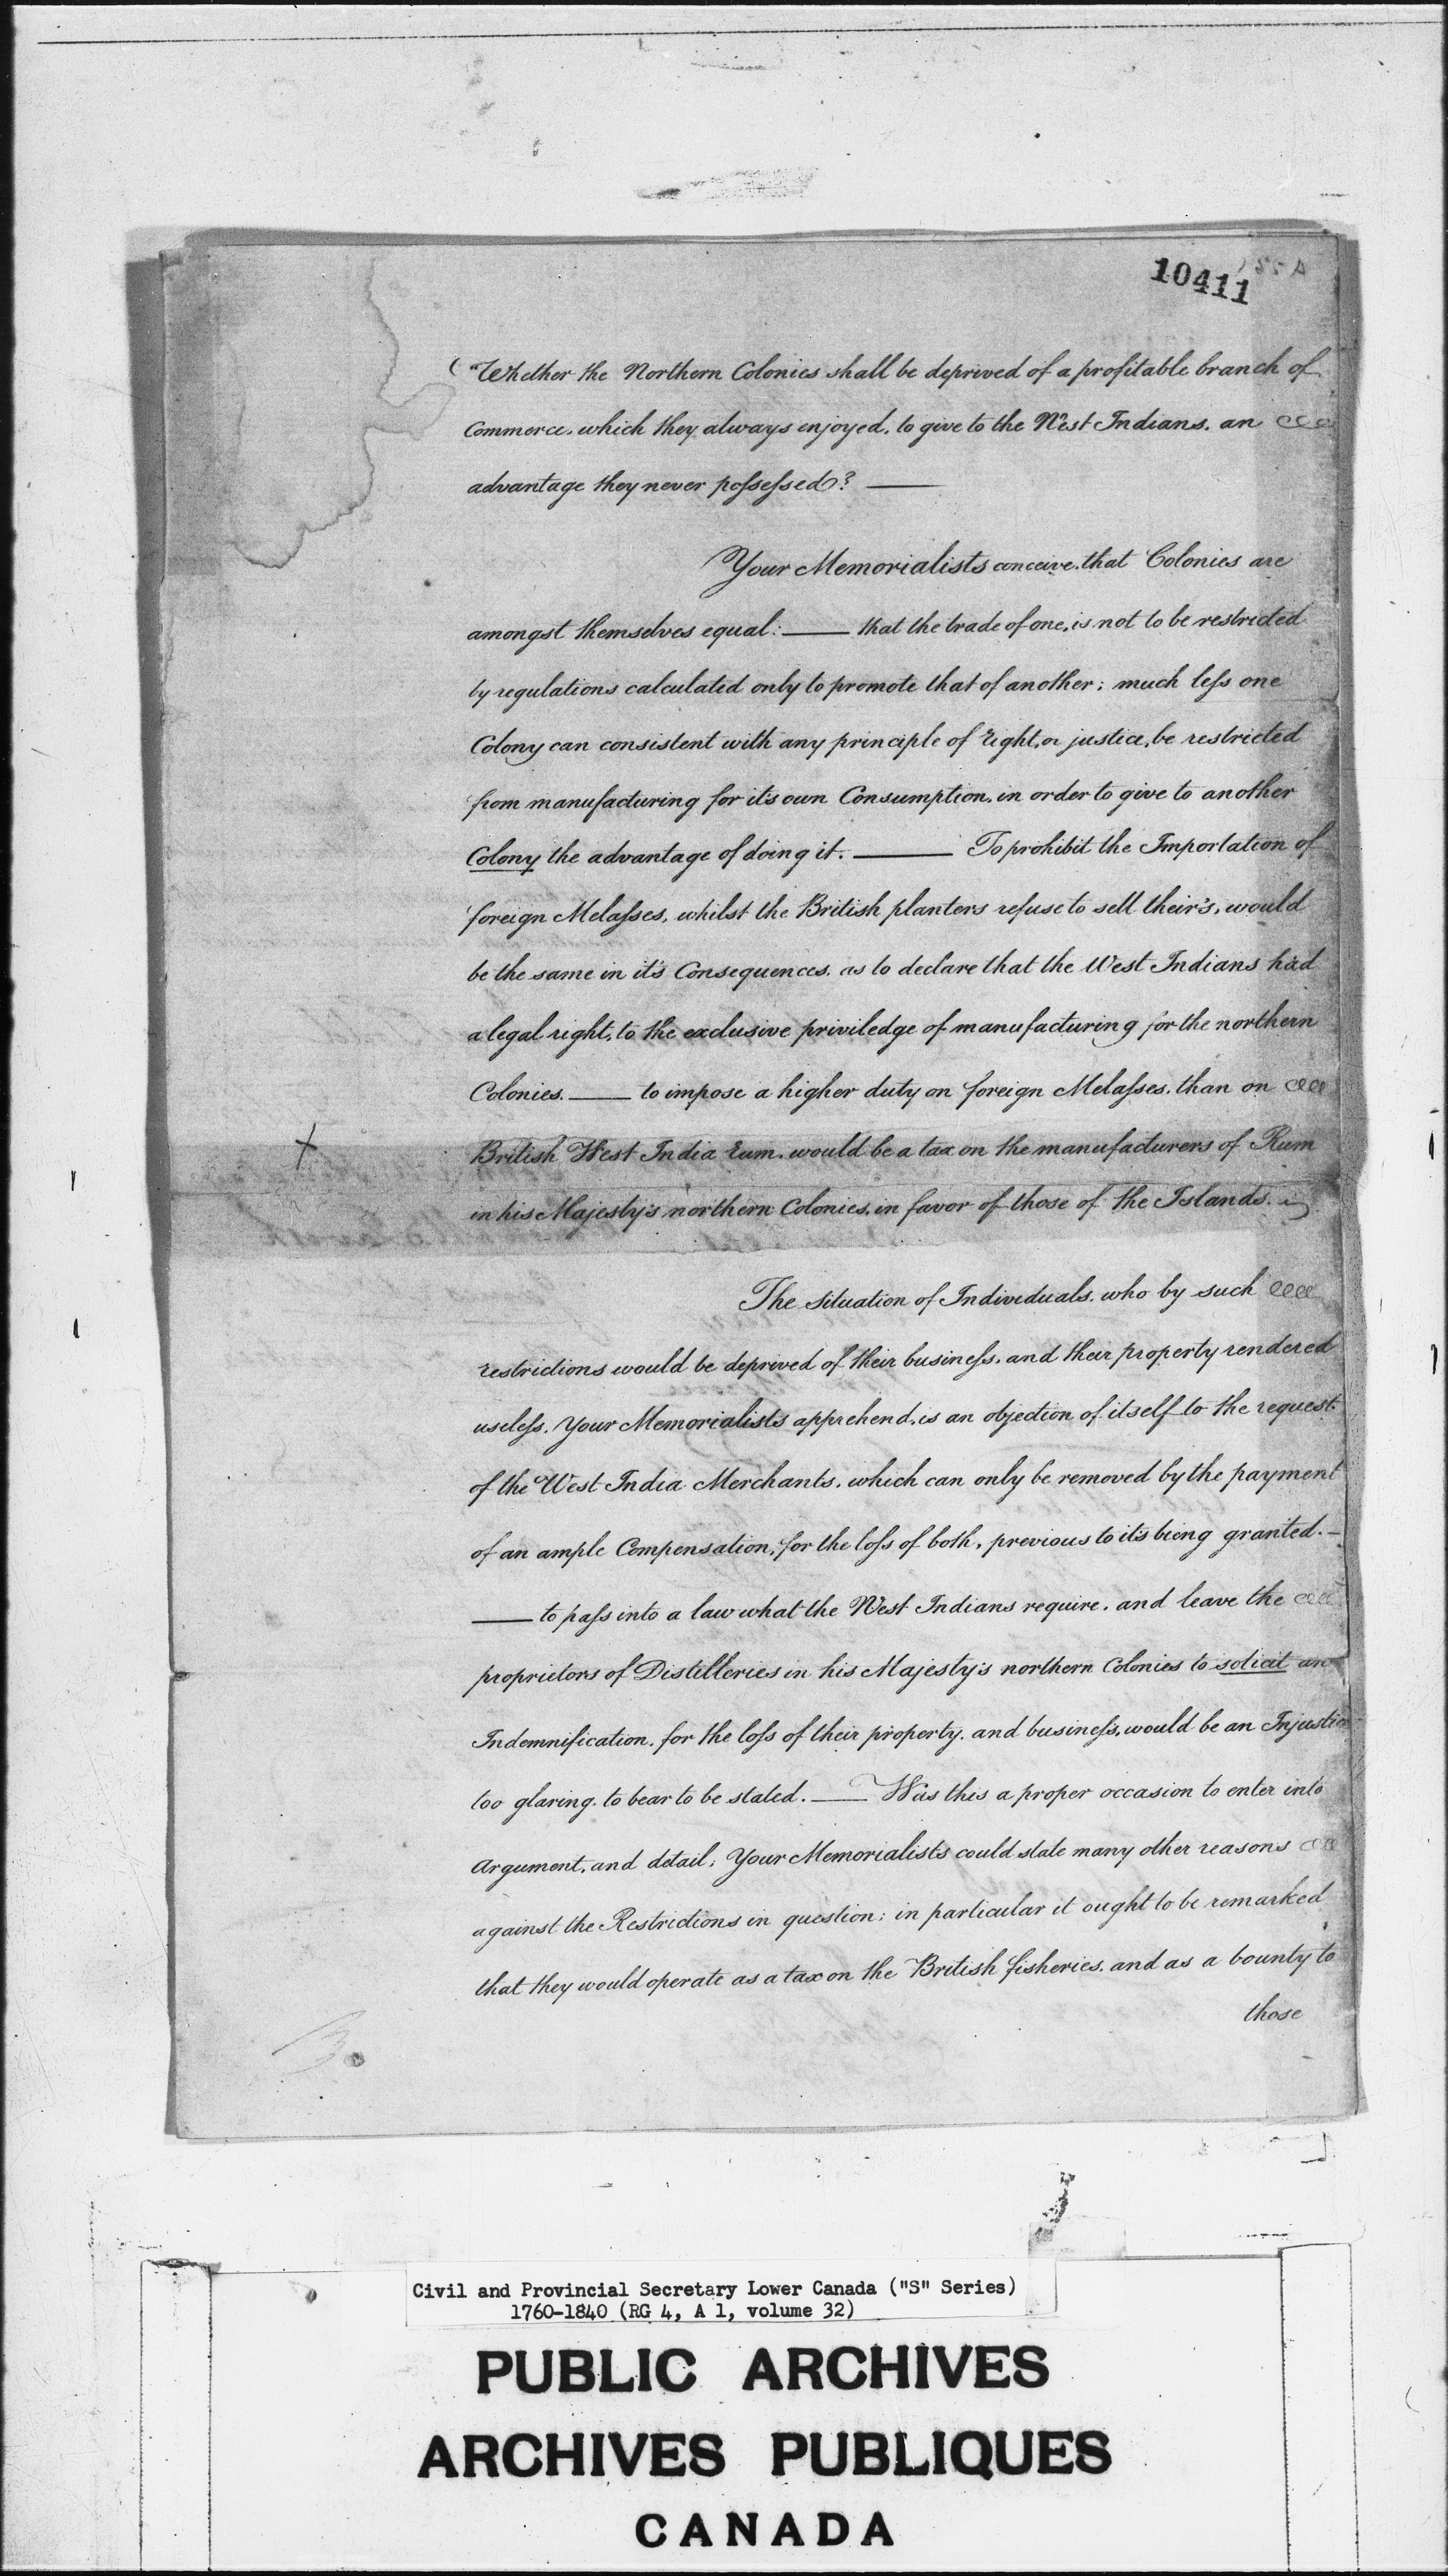 10411
"Whether the Northern Colonies shall be deprived of a profitable branch of
Commerce, which they always enjoyed, to give to the West Indians, an
advantage they never possessed? ——
Your Memorialists conceive, that Colonies are
amongst themselves equal: —— that the trade of one, is not to be restricted
by regulations calculated only to promote that of another; much less one
Colony can consistent with any principle of right, or justice, be restricted
from manufacturing for it's own Consumption, in order to give to another
Colony the advantage of doing it. —— To prohibit the Importation of
foreign Melasses, whilst the British planters refuse to sell their's, would
be the same in it's Consequences, as to declare that the West Indians had
a legal right, to the exclusive priviledge of manufacturing for the northern
Colonies. —— to impose a higher duty on foreign Melasses, than on
British West India rum, would be a tax on the manufacturers of Rum
in his Majesty's northern Colonies, in favor of those of the Islands.
The situation of Individuals, who by such
restrictions would be deprived of their business, and their property rendered
useless, Your Memorialists apprehend, is an objection of itself to the request
of the West India Merchants, which can only be removed by the payment
of an ample Compensation, for the loss of both, previous to it's being granted. —
—— to pass into a law what the West Indians require, and leave the
proprietors of Distilleries in his Majesty's northern Colonies to solicit an
Indemnification, for the loss of their property, and business, would be an Injustice
too glaring, to bear to be stated. —— Was this a proper occasion to enter into
Argument, and detail; Your Memorialists could state many other reasons
against the Restrictions in question: in particular it ought to be remarked
that they would operate as a tax on the British fisheries, and as a bounty to
those
Civil and Provincial Secretary Lower Canada ("S" Series)
1760-1840 (RG 4, A 1, volume 32)
PUBLIC ARCHIVES
ARCHIVES PUBLIQUES
CANADA